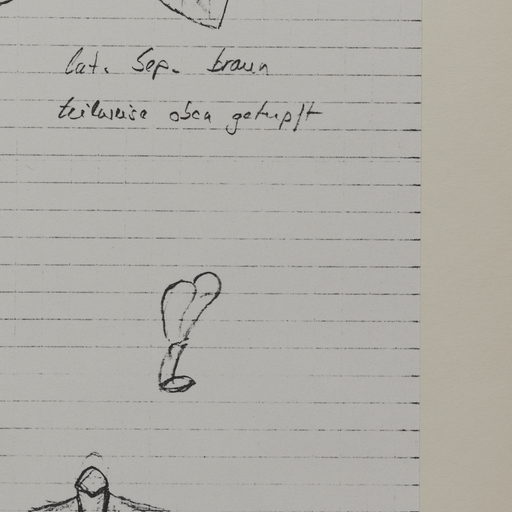 lat. Sep. braun
teilweise oben getupft